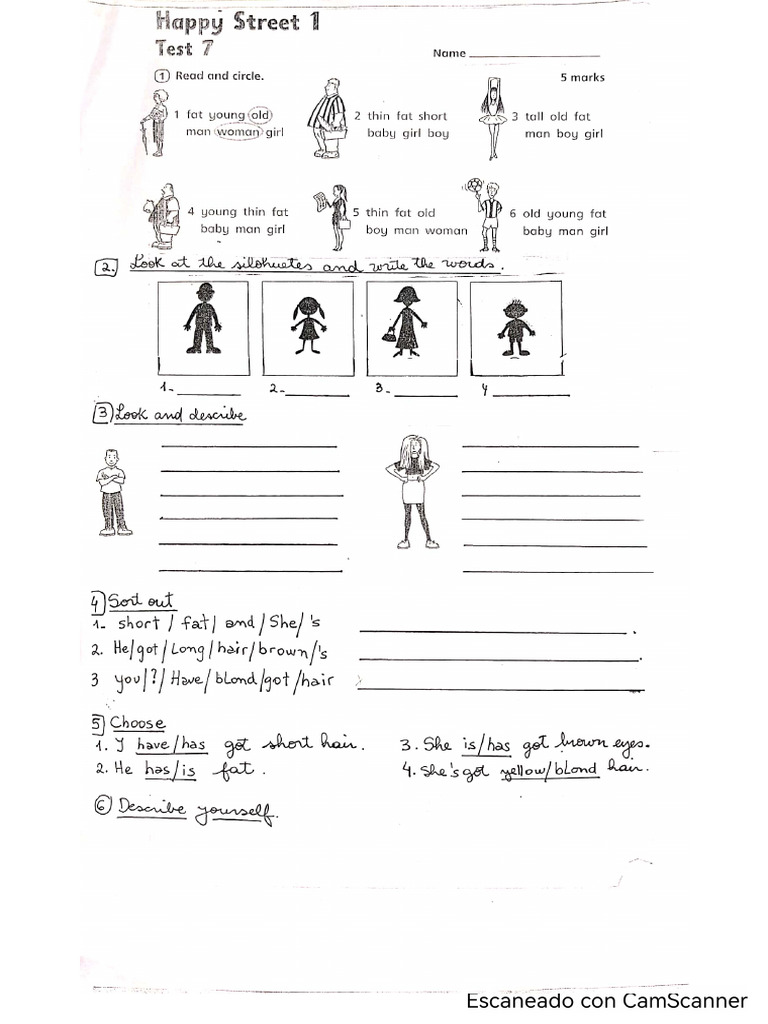 Happy Street 1
Test 7
Name
1 Read and circle. 5 marks
1 fat young old
man woman girl
2 thin fat short
baby girl boy
3 tall old fat
man boy girl
4 young thin fat
baby man girl
5 thin fat old
boy man woman
6 old young fat
baby man girl
2. Look at the silohuetes and write the words.
1- 2- 3- 4
3 Look and describe
4 Sort out
1- short / fat / and / She / 's
2. He/got/Long/hair/brown/'s
3 you/?/Have/blond/got/hair
5 Choose
1. I have/has got short hair.
2. He has/is fat.
3. She is/has got brown eyes.
4. She's got yellow/blond hair.
6 Describe yourself.
Escaneado con CamScanner